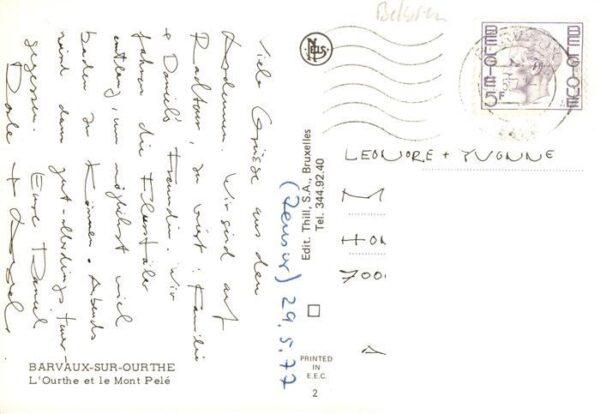 Belgien
BELGIE-BELGIQUE
5F
NELS
Viele Grüsse aus den
Ardennen. Wir sind auf
Radtour, zu viert: Familie
+ Daniels Freundin. Wir
fahren die Flusstäler
entlang, um möglichst viel
baden zu können. Abends
wird dann gut - allerdings teuer -
gegessen.
Eure Daniel
Dorle +
Edit. Thill, S.A., Bruxelles
Tel. 344.92.40
(Zensur) 29.5.77
LEONORE + YVONNE
M
HON
7000
BARVAUX-SUR-OURTHE
L'Ourthe et le Mont Pelé
PRINTED
IN
E.E.C.
2